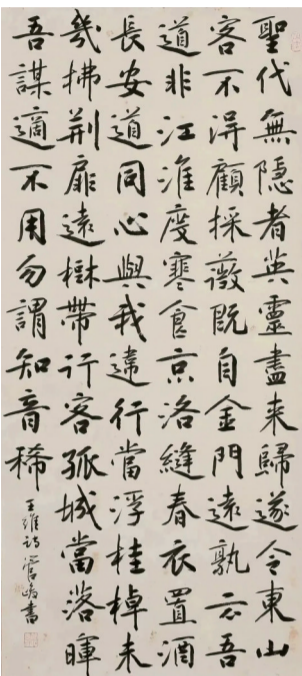 聖代無隱者英靈盡来歸遂令東山
客不淂顧採薇既自金門遠孰云吾
道非江淮度寒食京洛縫春衣置酒
長安道同心與我違行當浮桂棹未
幾拂荊扉遠樹帶行客孤城當落暉
吾謀適不用勿謂知音稀
王維詩管峻書